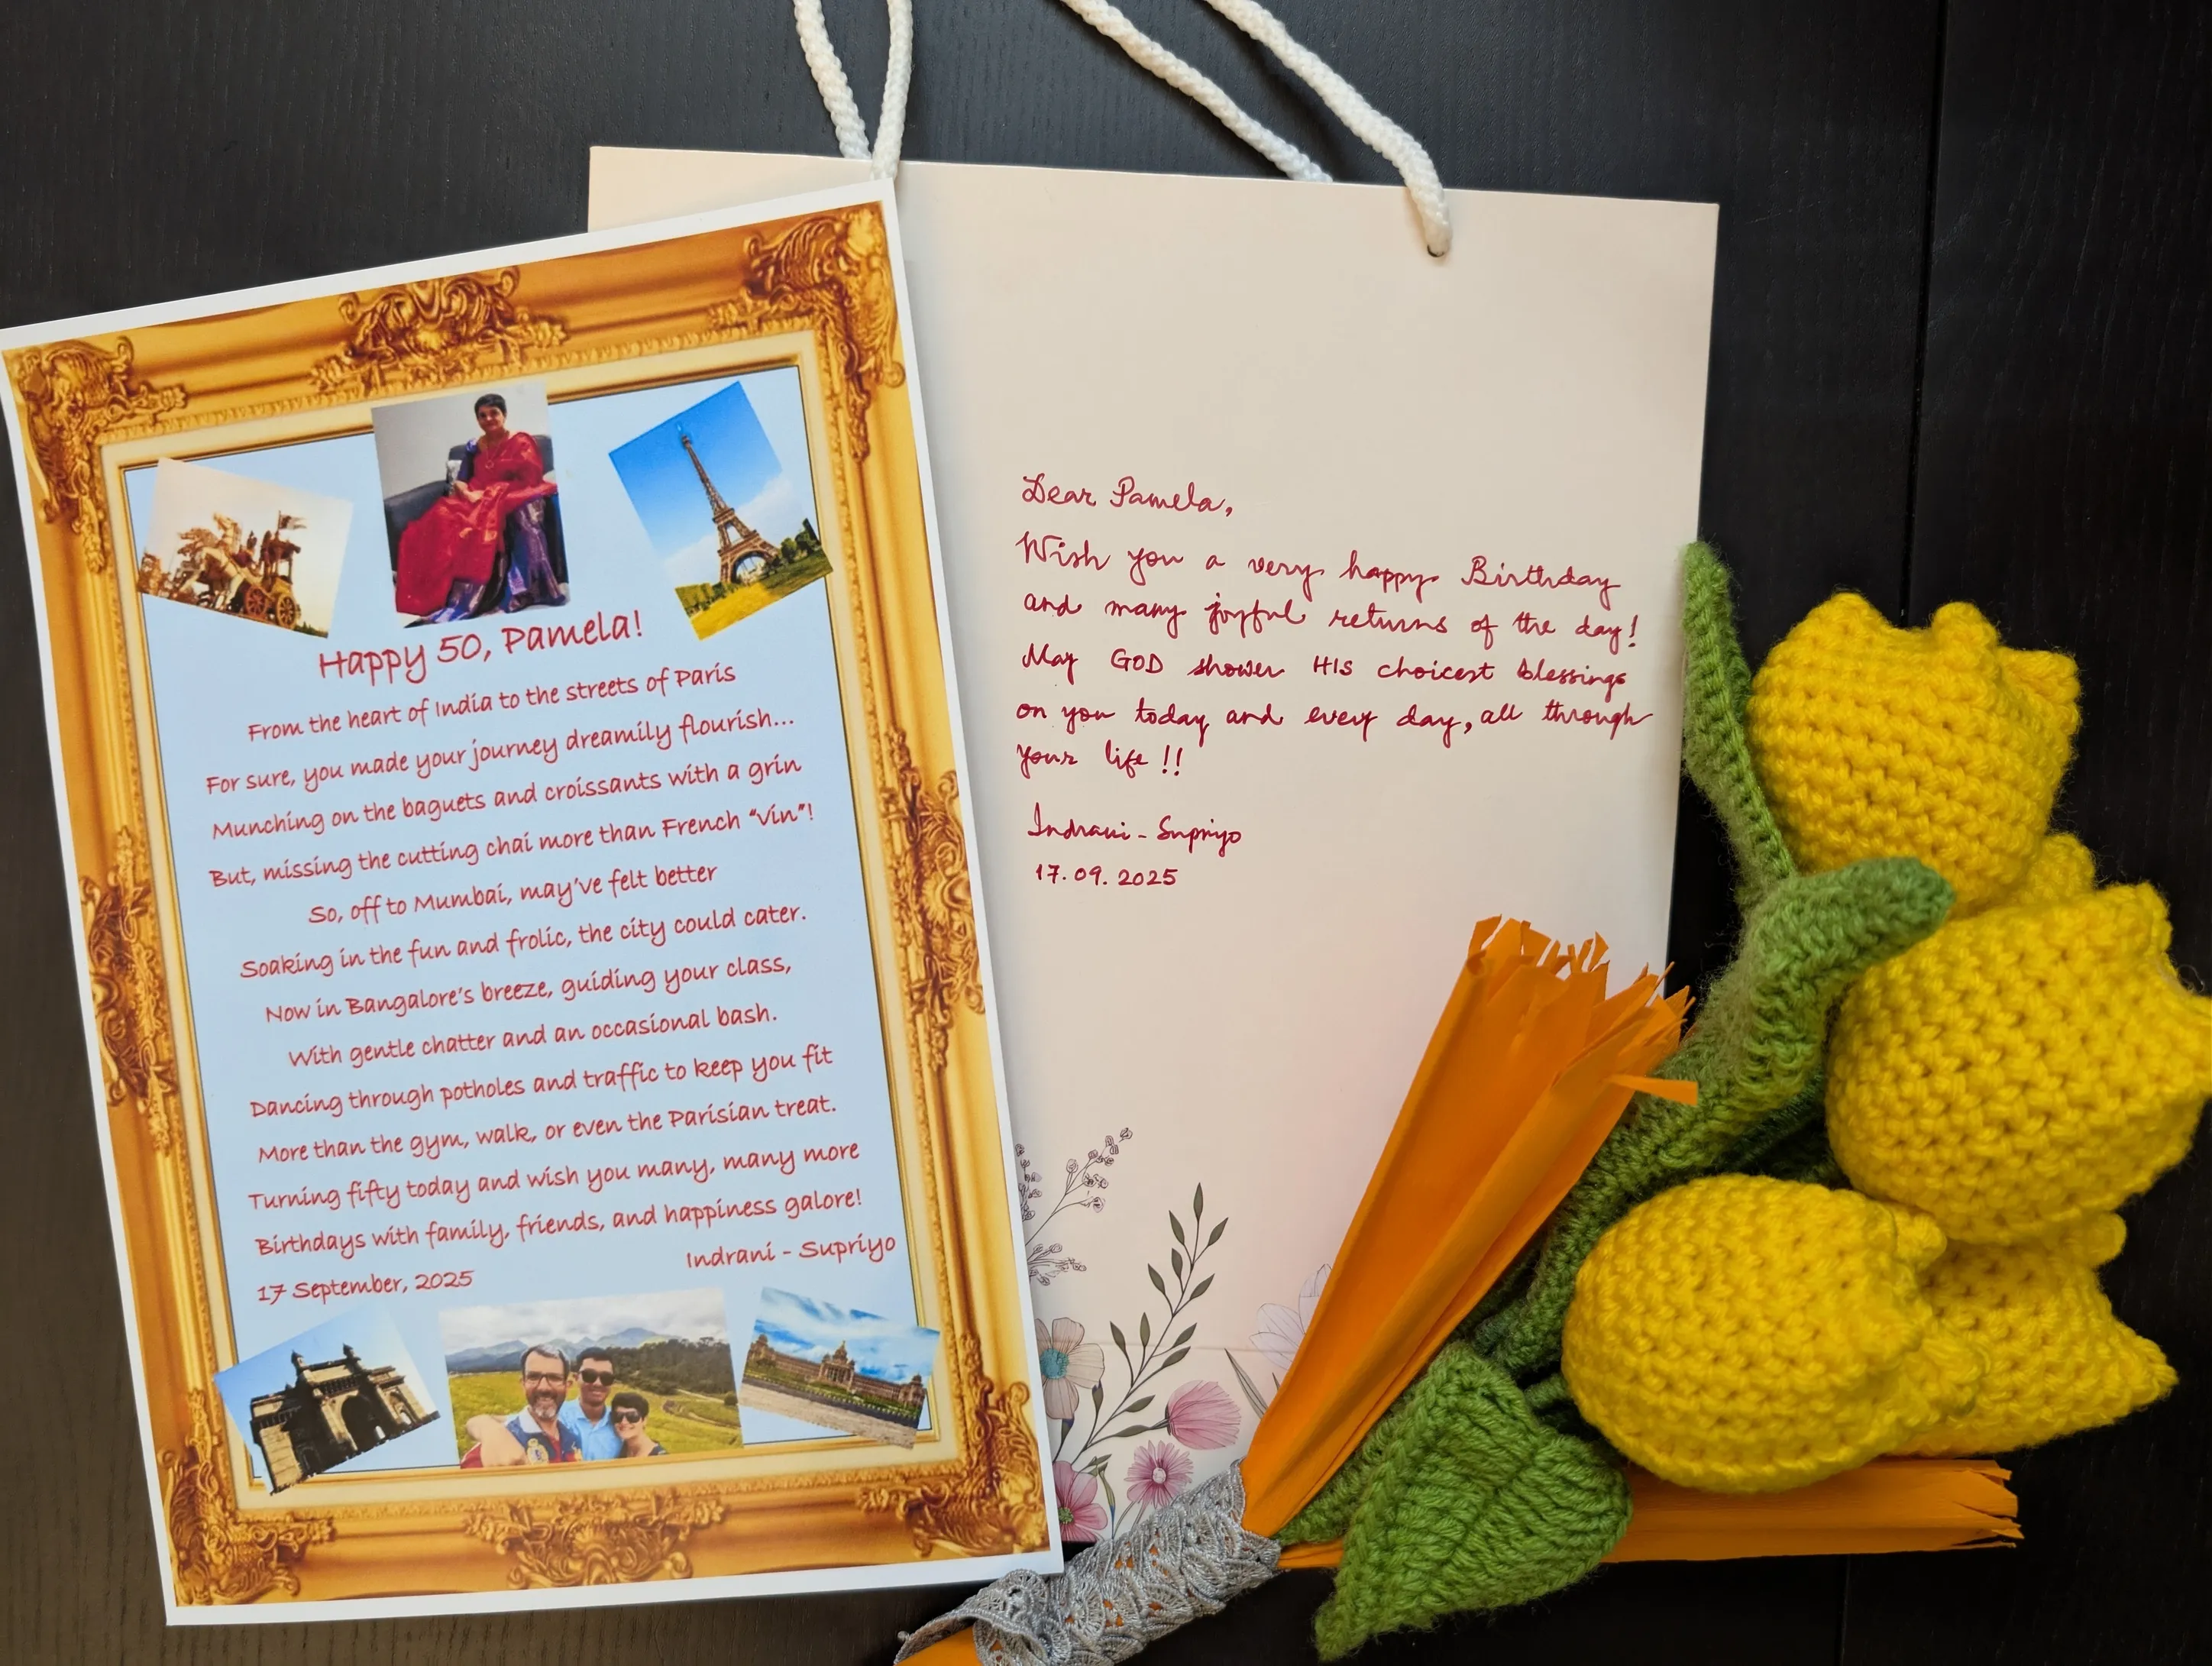 Happy 50, Pamela!
From the heart of India to the streets of Paris
For sure, you made your journey dreamily flourish...
Munching on the baguets and croissants with a grin
But, missing the cutting chai more than French “vin”!
So, off to Mumbai, may've felt better
Soaking in the fun and frolic, the city could cater.
Now in Bangalore's breeze, guiding your class,
With gentle chatter and an occasional bash.
Dancing through potholes and traffic to keep you fit
More than the gym, walk, or even the Parisian treat.
Turning fifty today and wish you many, many more
Birthdays with family, friends, and happiness galore!
Indrani - Supriyo
17 September, 2025
Dear Pamela,
Wish you a very happy Birthday
and many joyful returns of the day!
May GOD shower HIS choicest blessings
on you today and every day, all through
your life !!
Indrani - Supriyo
17.09.2025